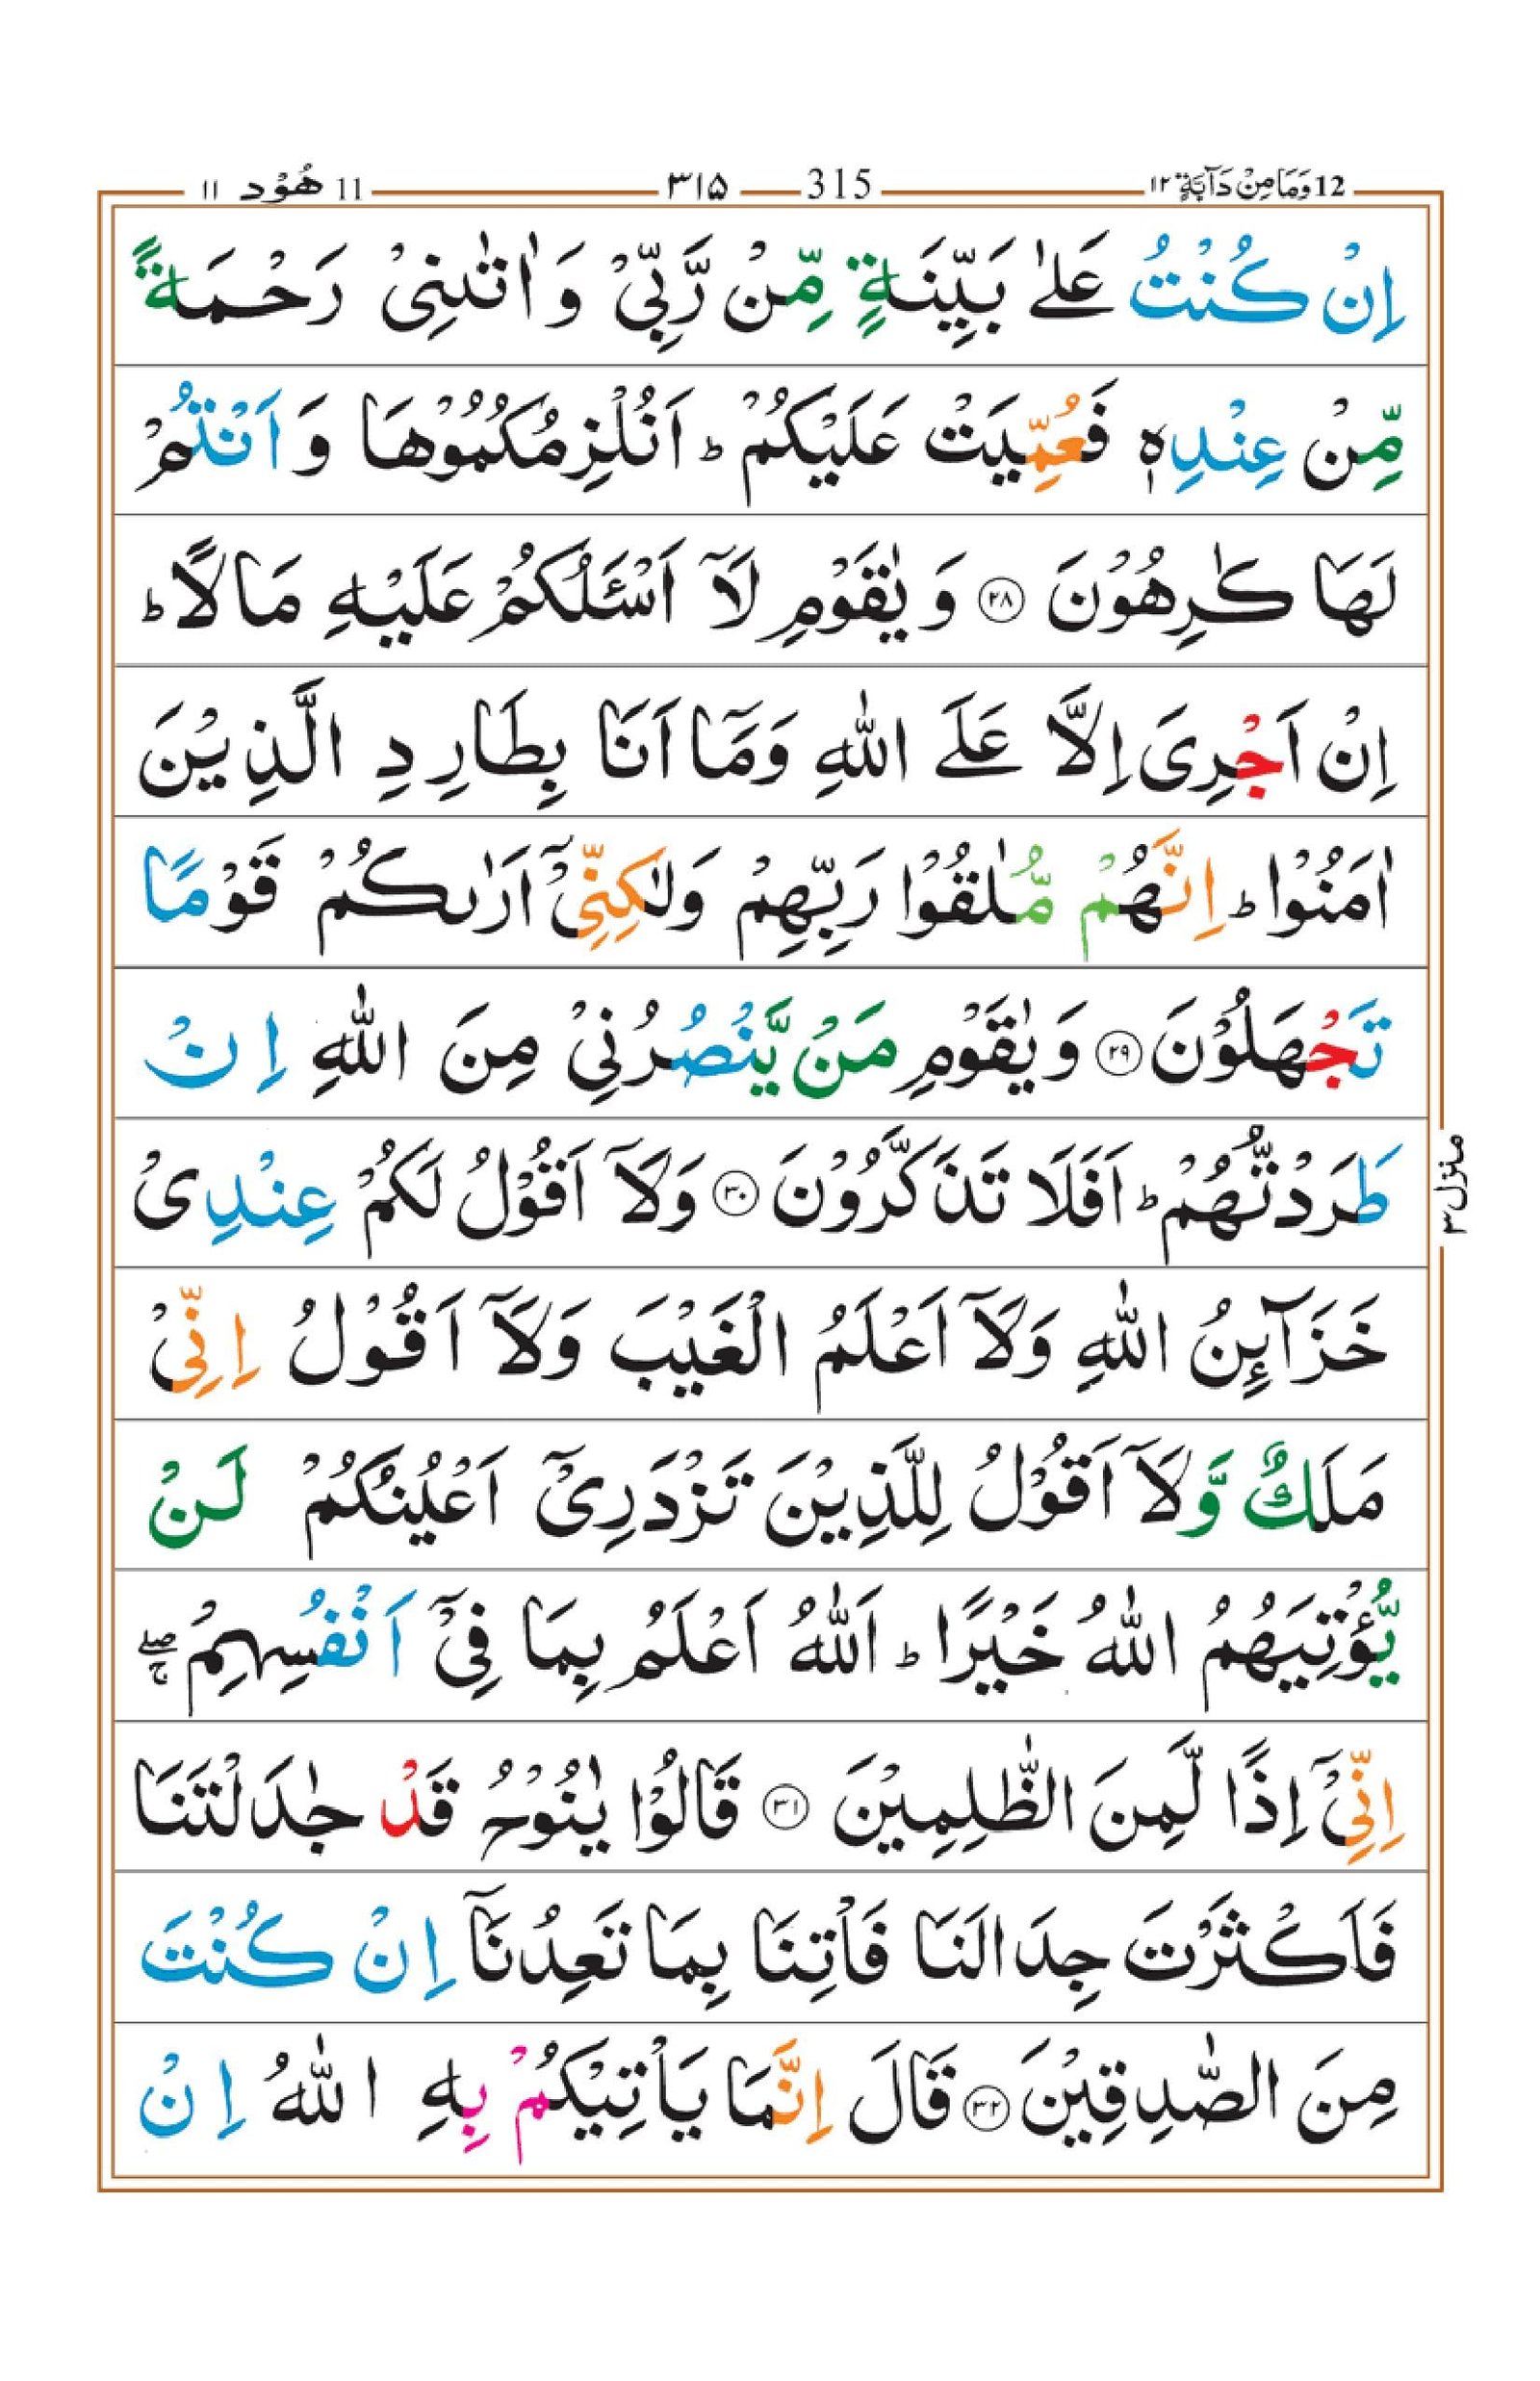 12 وَمَا مِنْ دَآبَّةٍ ١٢ 315 ٣١٥ 11 هُوْد ١١
اِنْ كُنْتُ عَلٰى بَيِّنَةٍ مِّنْ رَّبِّىْ وَ اٰتٰىنِىْ رَحْمَةً
مِّنْ عِنْدِهٖ فَعُمِّيَتْ عَلَيْكُمْ ؕ اَنُلْزِمُكُمُوْهَا وَ اَنْتُمْ
لَهَا كٰرِهُوْنَ ۝٢٨ وَ يٰقَوْمِ لَاۤ اَسْـَٔلُكُمْ عَلَيْهِ مَالًا ؕ
اِنْ اَجْرِىَ اِلَّا عَلَى اللّٰهِ وَمَاۤ اَنَا بِطَارِدِ الَّذِيْنَ
اٰمَنُوْا ؕ اِنَّهُمْ مُّلٰقُوْا رَبِّهِمْ وَلٰكِنِّىْۤ اَرٰىكُمْ قَوْمًا
تَجْهَلُوْنَ ۝٢٩ وَ يٰقَوْمِ مَنْ يَّنْصُرُنِىْ مِنَ اللّٰهِ اِنْ
طَرَدْتُّهُمْ ؕ اَفَلَا تَذَكَّرُوْنَ ۝٣٠ وَلَاۤ اَقُوْلُ لَكُمْ عِنْدِىْ
خَزَآئِنُ اللّٰهِ وَلَاۤ اَعْلَمُ الْغَيْبَ وَلَاۤ اَقُوْلُ اِنِّىْ
مَلَكٌ وَّلَاۤ اَقُوْلُ لِلَّذِيْنَ تَزْدَرِىْۤ اَعْيُنُكُمْ لَنْ
يُّؤْتِيَهُمُ اللّٰهُ خَيْرًا ؕ اَللّٰهُ اَعْلَمُ بِمَا فِىْۤ اَنْفُسِهِمْ ۖۚ
اِنِّىْۤ اِذًا لَّمِنَ الظّٰلِمِيْنَ ۝٣١ قَالُوْا يٰنُوْحُ قَدْ جٰدَلْتَنَا
فَاَكْثَرْتَ جِدَالَنَا فَاْتِنَا بِمَا تَعِدُنَاۤ اِنْ كُنْتَ
مِنَ الصّٰدِقِيْنَ ۝٣٢ قَالَ اِنَّمَا يَاْتِيْكُمْ بِهِ اللّٰهُ اِنْ
منزل ٣